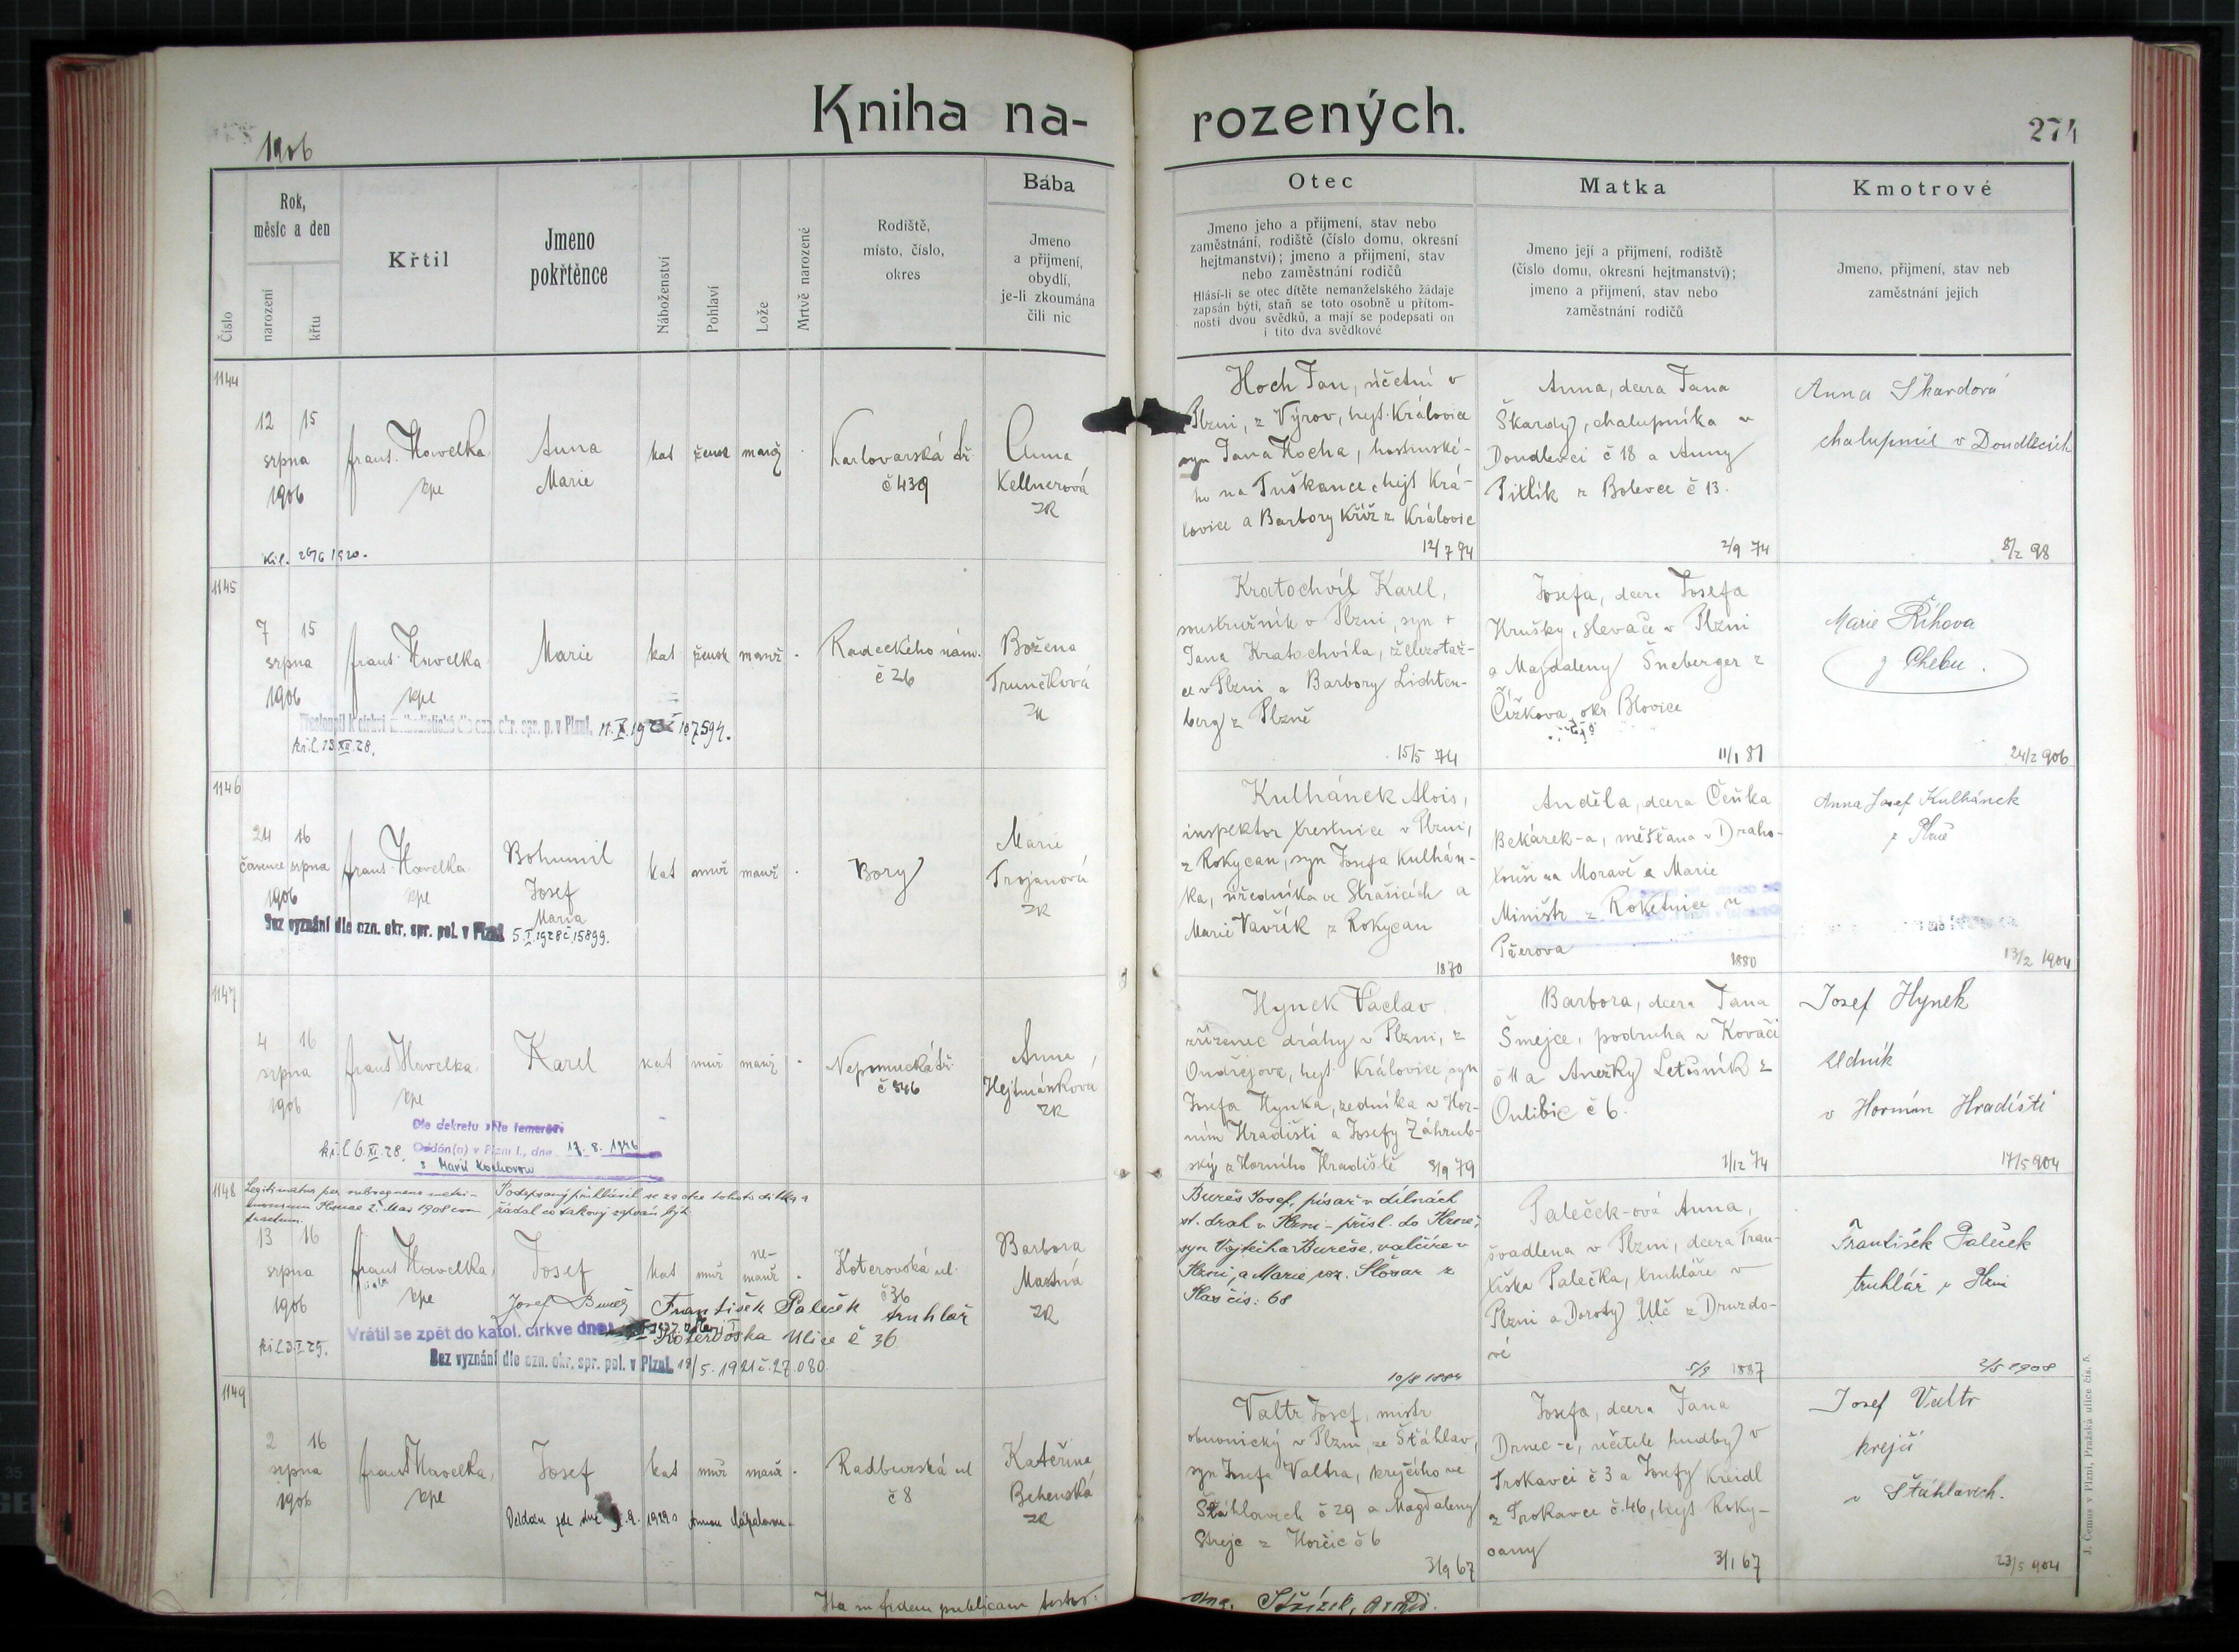 1906
Kniha na-
rozených.
274
Číslo
Rok,
měsíc a den
narození
křtu
Křtil
Jmeno
pokřtěnce
Náboženství
Pohlaví
Lože
Mrtvě narozené
Rodiště,
místo, číslo,
okres
Bába
Jmeno
a přijmení,
obydlí,
je-li zkoumána
čili nic
Otec
Jmeno jeho a přijmení, stav nebo
zaměstnání, rodiště (číslo domu, okresní
hejtmanství); jmeno a přijmení, stav
nebo zaměstnání rodičů
Hlásí-li se otec dítěte nemanželského žádaje
zapsán býti, staň se toto osobně u přítom-
nosti dvou svědků, a mají se podepsati on
i tito dva svědkové
Matka
Jmeno její a přijmení, rodiště
(číslo domu, okresní hejtmanství);
jmeno a přijmení, stav nebo
zaměstnání rodičů
Kmotrové
Jmeno, přijmení, stav neb
zaměstnání jejich
1144
12 15
srpna
1906
frant. Havelka
kpe
Anna
Marie
kat žensk manž
Karlovarská tř
č 439
Anna
Kellnerová
ZK
Hoch Jan, účetní v
Plzni, z Výrov, hejt. Kralovice
syn Jana Hocha, hostinské-
ho na Tuškance, hejt Kra-
lovice a Barbory Kříž z Kralovic
12/7 74
Anna, dcera Jana
Škardy, chalupníka v
Doudlevci č 18 a Anny
Pitlík z Bolevce č 13.
2/9 74
Anna Škardová
chalupnic v Doudlevcích
8/2 98
1145
7 15
srpna
1906
frant. Havelka
kpe
Marie
kat žensk manž
Radeckého nám.
č 26
Božena
Trunečková
ZK
kř.l. 13 XII. 28.
Kratochvíl Karel,
soustružník v Plzni, syn +
Jana Kratochvíla, železotaž-
ce v Plzni a Barbory Lichten-
berg z Plzně
15/5 74
Josefa, dcera Josefa
Hrušky, slevače v Plzni
a Majdaleny Šneberger z
Čížkova, okr Blovice
11/1 81
Marie Říhova
z Chebu.
24/2 906
1146
24 16
července srpna
1906
frant. Havelka
kpe
Bohumil
Josef
Maria
kat muž manž
Bory
Marie
Trojanová
ZK
Bez vyznání dle ozn. okr. spr. pol. v Plzni 5. I. 1928 č. 15899.
Kulhánek Alois,
inspektor trestnice v Plzni,
z Rokycan, syn Josefa Kulhán-
ka, úředníka ve Strašicích a
Marie Vavřík z Rokycan
1870
Anděla, dcera Čeňka
Bekárek-a, měšťana v Draho-
touši na Moravě a Marie
Ministr z Roketnice u
Přerova
1880
Anna Josef Kulhánek
z Plzně
13/2 1904
1147
4 16
srpna
1906
frant Havelka
kpe
Karel
kat muž manž
Nepomucká tř
č 546
Anna
Hejtmánková
ZK
kř.l. 6. XI. 28.
Dle dekretu »Ne temere«
Oddán(a) v Plzni I., dne 17. 8. 1946
s Marií Kochovou
Hynek Václav
zřízenec dráhy v Plzni, z
Ondřejova, hejt. Kralovice, syn
Josefa Hynka, zedníka v Hor-
ním Hradišti a Josefy Záhrub-
ský z Horního Hradiště 8/9 79
Barbora, dcera Jana
Šmejce, podruha v Kovači
č 11 a Anežky Letušník z
Outibic č 6.
1/12 74
Josef Hynek
zedník
v Horním Hradišti
17/5 904
1148
Legitimatus per subsequens matri-
monium Plznae 2. Mai 1908 con
tractum.
Podepsaný přihlásil se za otce tohoto dítka a
žádal co takový zapsán být
13 16
srpna
1906
frant Havelka
kpe
Josef
kat muž
ne-
manž
Koterovská ul.
č 36
Barbora
Mastná
ZK
Josef Bureš
František Paleček truhlář
Koterovska Ulice č 36.
kř.l. 3. I. 29.
Vrátil se zpět do katol. církve dne
Bez vyznání dle ozn. okr. spr. pol. v Plzni 18/5. 1921 č. 27.080.
Bureš Josef, písař v dílnách
st. drah v Plzni – přísl. do Plzně,
syn Vojtěcha Bureše, valcíře v
Plzni, a Marie roz. Slovar z
Plas čís: 68
10/8 1884
Paleček-ová Anna,
švadlena v Plzni, dcera Fran-
tiška Palečka, truhláře v
Plzni a Doroty Ulč z Druzdo-
vé
5/9 1887
František Paleček
truhlář v Plzni
2/5 1908
1149
2 16
srpna
1906
frant Havelka,
kpe
Josef
kat muž manž
Radbuzská ul
č 8
Kateřina
Behenská
ZK
Valtr Josef, mistr
obuvnický v Plzni, ze Šťáhlav,
syn Josefa Valtra, krejčího ve
Šťáhlavech č 29 a Magdaleny
Strejc z Horčic č 6
3/9 67
Josefa, dcera Jana
Drnec-e, učitele hudby v
Trokavci č 3 a Josefy Kreidl
z Trokavce č. 46, hejt Roky-
cany
3/1 67
Josef Valtr
krejčí
v Šťáhlavech.
23/5 904
Ita in fidem publicam testor:
J. Čemus v Plzni, Pražská ulice čís. 5.